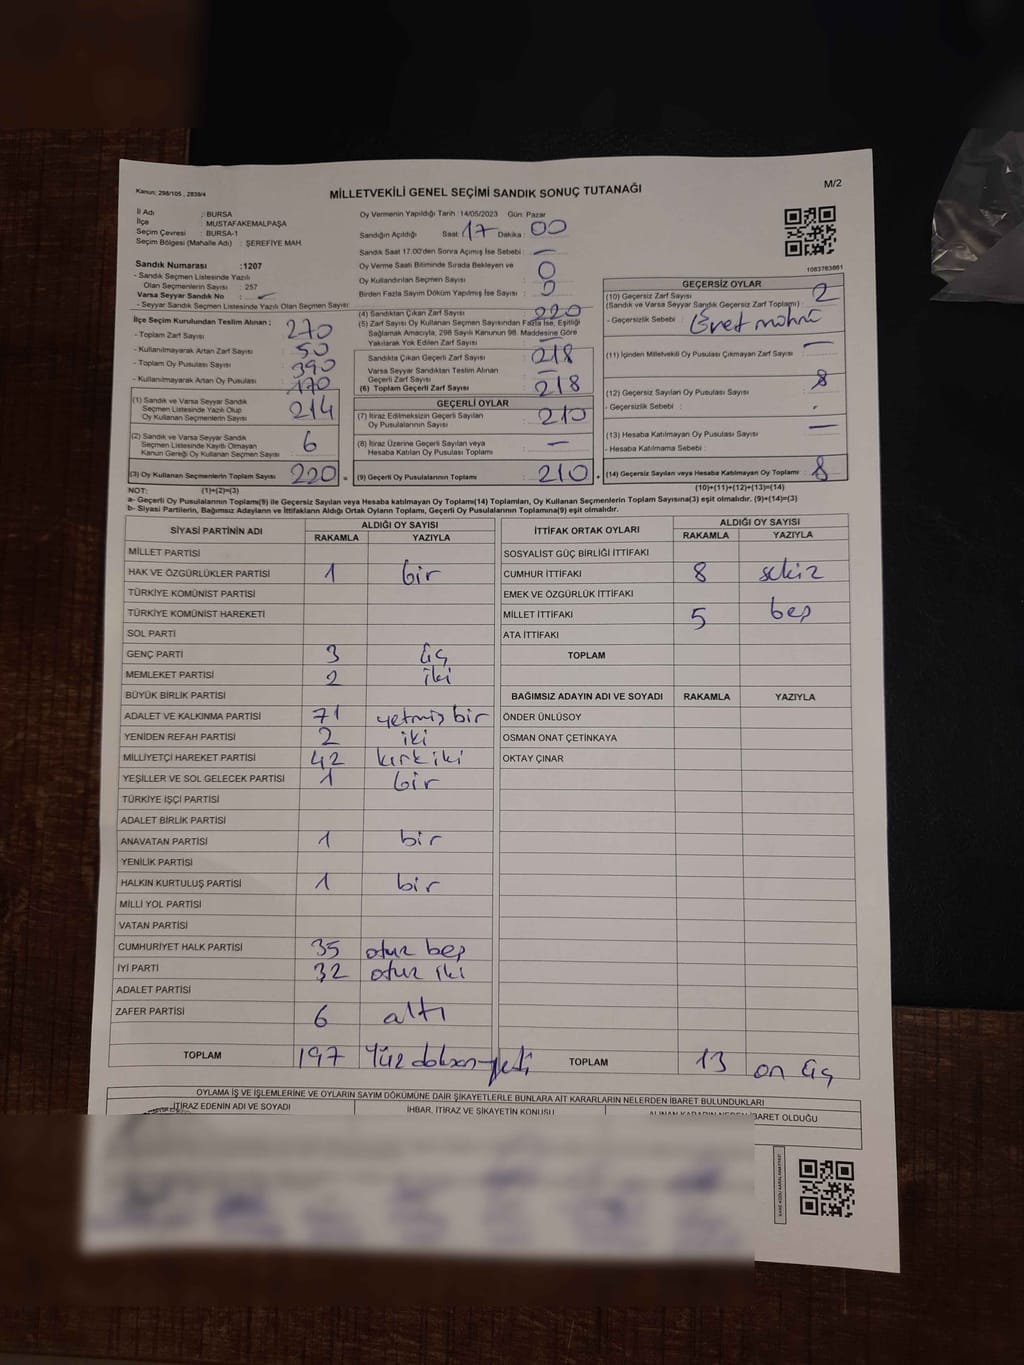 Kanun; 298/105 , 2839/4
MİLLETVEKİLİ GENEL SEÇİMİ SANDIK SONUÇ TUTANAĞI
M/2
İl Adı : BURSA
İlçe : MUSTAFAKEMALPAŞA
Seçim Çevresi : BURSA-1
Seçim Bölgesi (Mahalle Adı) : ŞEREFİYE MAH.
Oy Vermenin Yapıldığı Tarih :14/05/2023 Gün: Pazar
Sandığın Açıldığı Saat : 17 Dakika : 00
Sandık Saat 17.00'den Sonra Açımış İse Sebebi : —
Oy Verme Saati Bitiminde Sırada Bekleyen ve
Oy Kullandırılan Seçmen Sayısı : 0
Birden Fazla Sayım Döküm Yapılmış İse Sayısı : 0
1063763661
Sandık Numarası :1207
- Sandık Seçmen Listesinde Yazılı
Olan Seçmenlerin Sayısı : 257
Varsa Seyyar Sandık No :
- Seyyar Sandık Seçmen Listesinde Yazılı Olan Seçmen Sayısı:
İlçe Seçim Kurulundan Teslim Alınan ;
- Toplam Zarf Sayısı 270
- Kullanılmayarak Artan Zarf Sayısı 50
- Toplam Oy Pusulası Sayısı 390
- Kullanılmayarak Artan Oy Pusulası 170
(1) Sandık ve Varsa Seyyar Sandık
Seçmen Listesinde Yazılı Olup
Oy Kullanan Seçmenlerin Sayısı 214
(2) Sandık ve Varsa Seyyar Sandık
Seçmen Listesinde Kayıtlı Olmayan
Kanun Gereği Oy Kullanan Seçmen Sayısı 6
(3) Oy Kullanan Seçmenlerin Toplam Sayısı 220
(4) Sandıktan Çıkan Zarf Sayısı 220
(5) Zarf Sayısı Oy Kullanan Seçmen Sayısından Fazla İse, Eşitliği
Sağlamak Amacıyla, 298 Sayılı Kanunun 98. Maddesine Göre
Yakılarak Yok Edilen Zarf Sayısı —
Sandıkta Çıkan Geçerli Zarf Sayısı 218
Varsa Seyyar Sandıktan Teslim Alınan
Geçerli Zarf Sayısı —
(6) Toplam Geçerli Zarf Sayısı 218
GEÇERLİ OYLAR
(7) İtiraz Edilmeksizin Geçerli Sayılan
Oy Pusulalarının Sayısı 210
(8) İtiraz Üzerine Geçerli Sayılan veya
Hesaba Katılan Oy Pusulası Toplamı —
(9) Geçerli Oy Pusulalarının Toplamı 210
GEÇERSİZ OYLAR
(10) Geçersiz Zarf Sayısı 2
(Sandık ve Varsa Seyyar Sandık Geçersiz Zarf Toplamı) :
- Geçersizlik Sebebi :
(11) İçinden Milletvekili Oy Pusulası Çıkmayan Zarf Sayısı : —
(12) Geçersiz Sayılan Oy Pusulası Sayısı : 8
- Geçersizlik Sebebi :
(13) Hesaba Katılmayan Oy Pusulası Sayısı : —
- Hesaba Katılmama Sebebi :
(14) Geçersiz Sayılan veya Hesaba Katılmayan Oy Toplamı : 8
NOT: (1)+(2)=(3) (10)+(11)+(12)+(13)=(14)
a- Geçerli Oy Pusulalarının Toplamı(9) ile Geçersiz Sayılan veya Hesaba katılmayan Oy Toplamı(14) Toplamları, Oy Kullanan Seçmenlerin Toplam Sayısına(3) eşit olmalıdır. (9)+(14)=(3)
b- Siyasi Partilerin, Bağımsız Adayların ve İttifakların Aldığı Ortak Oyların Toplamı, Geçerli Oy Pusulalarının Toplamına(9) eşit olmalıdır.
SİYASİ PARTİNİN ADI ALDIĞI OY SAYISI
RAKAMLA YAZIYLA
MİLLET PARTİSİ
HAK VE ÖZGÜRLÜKLER PARTİSİ 1 bir
TÜRKİYE KOMÜNİST PARTİSİ
TÜRKİYE KOMÜNİST HAREKETİ
SOL PARTİ
GENÇ PARTİ 3 üç
MEMLEKET PARTİSİ 2 iki
BÜYÜK BİRLİK PARTİSİ
ADALET VE KALKINMA PARTİSİ 71 yetmiş bir
YENİDEN REFAH PARTİSİ 2 iki
MİLLİYETÇİ HAREKET PARTİSİ 42 kırk iki
YEŞİLLER VE SOL GELECEK PARTİSİ 1 bir
TÜRKİYE İŞÇİ PARTİSİ
ADALET BİRLİK PARTİSİ
ANAVATAN PARTİSİ 1 bir
YENİLİK PARTİSİ
HALKIN KURTULUŞ PARTİSİ 1 bir
MİLLİ YOL PARTİSİ
VATAN PARTİSİ
CUMHURİYET HALK PARTİSİ 35 otuz beş
İYİ PARTİ 32 otuz iki
ADALET PARTİSİ
ZAFER PARTİSİ 6 altı
TOPLAM 197 Yüz doksan yedi
İTTİFAK ORTAK OYLARI ALDIĞI OY SAYISI
RAKAMLA YAZIYLA
SOSYALİST GÜÇ BİRLİĞİ İTTİFAKI
CUMHUR İTTİFAKI 8 sekiz
EMEK VE ÖZGÜRLÜK İTTİFAKI
MİLLET İTTİFAKI 5 beş
ATA İTTİFAKI
TOPLAM
BAĞIMSIZ ADAYIN ADI VE SOYADI RAKAMLA YAZIYLA
ÖNDER ÜNLÜSOY
OSMAN ONAT ÇETİNKAYA
OKTAY ÇINAR
TOPLAM 13 on üç
OYLAMA İŞ VE İŞLEMLERİNE VE OYLARIN SAYIM DÖKÜMÜNE DAİR ŞİKAYETLERLE BUNLARA AİT KARARLARIN NELERDEN İBARET BULUNDUKLARI
İTİRAZ EDENİN ADI VE SOYADI İHBAR, İTİRAZ VE ŞİKAYETİN KONUSU ALINAN KARARIN NEDEN İBARET OLDUĞU